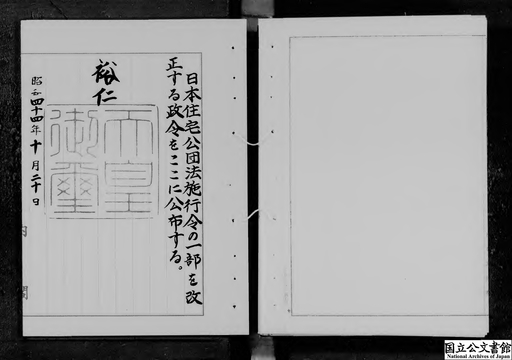 日本住宅公団法施行令の一部を改
正する政令をここに公布する。
裕仁
天皇
御璽
昭和四十四年十月二十日
内閣
国立公文書館
National Archives of Japan